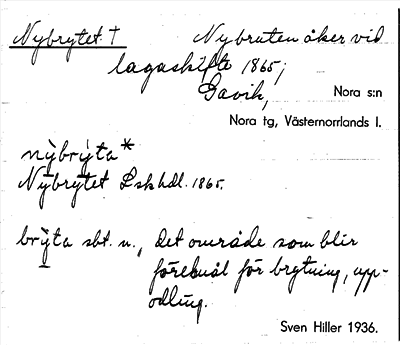 Nybrytet † Nybruten åker vid
lagaskifte 1865,
Gavik, Nora s:n
Nora tg, Västernorrlands l.
nỳbrỳta*
Nybrytet Lskhdl. 1865.
brỳta sbt. n., det område som blir
föremål för brytning, upp-
odling.
Sven Hiller 1936.